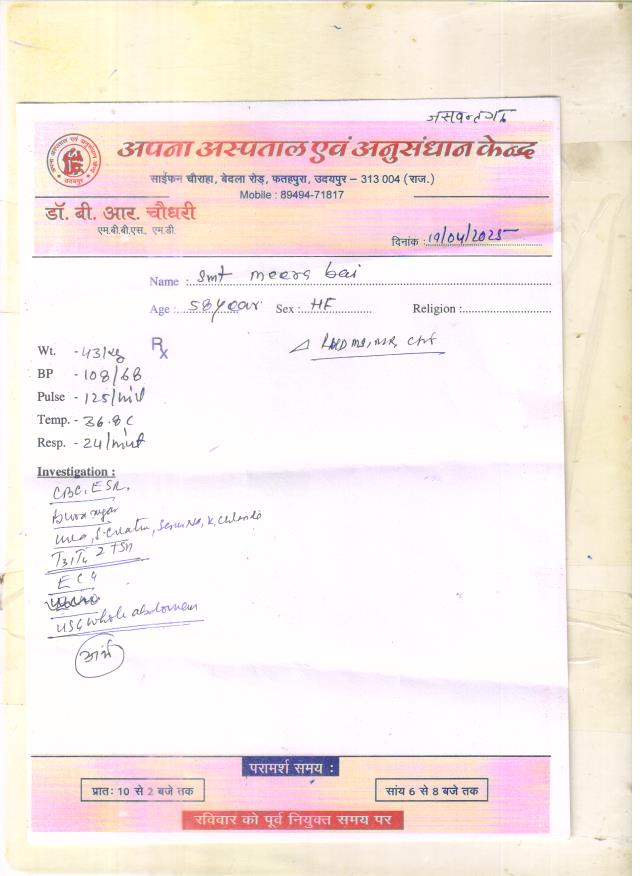 जसवन्तगढ
अपना अस्पताल एवं अनुसंधान केन्द्र
साईफन चौराहा, बेदला रोड़, फतहपुरा, उदयपुर – 313 004 (राज.)
Mobile : 89494-71817
डॉ. बी. आर. चौधरी
एम.बी.बी.एस. एम.डी.
दिनांक : 19/04/2025
Name : Smt meera bai
Age : 58 year Sex : HF Religion :
Wt. - 43 kg Rx
BP - 108/68
Pulse - 125/mit
Temp. - 36.8 C
Resp. - 24/mint
Investigation :
CBC, ESR,
urea, S. Creatin, Serum Na, K, Chloride
T3, T4 2 TSH
ECG
USG whole abdomen
परामर्श समय :
प्रातः 10 से 2 बजे तक
सांय 6 से 8 बजे तक
रविवार को पूर्व नियुक्त समय पर